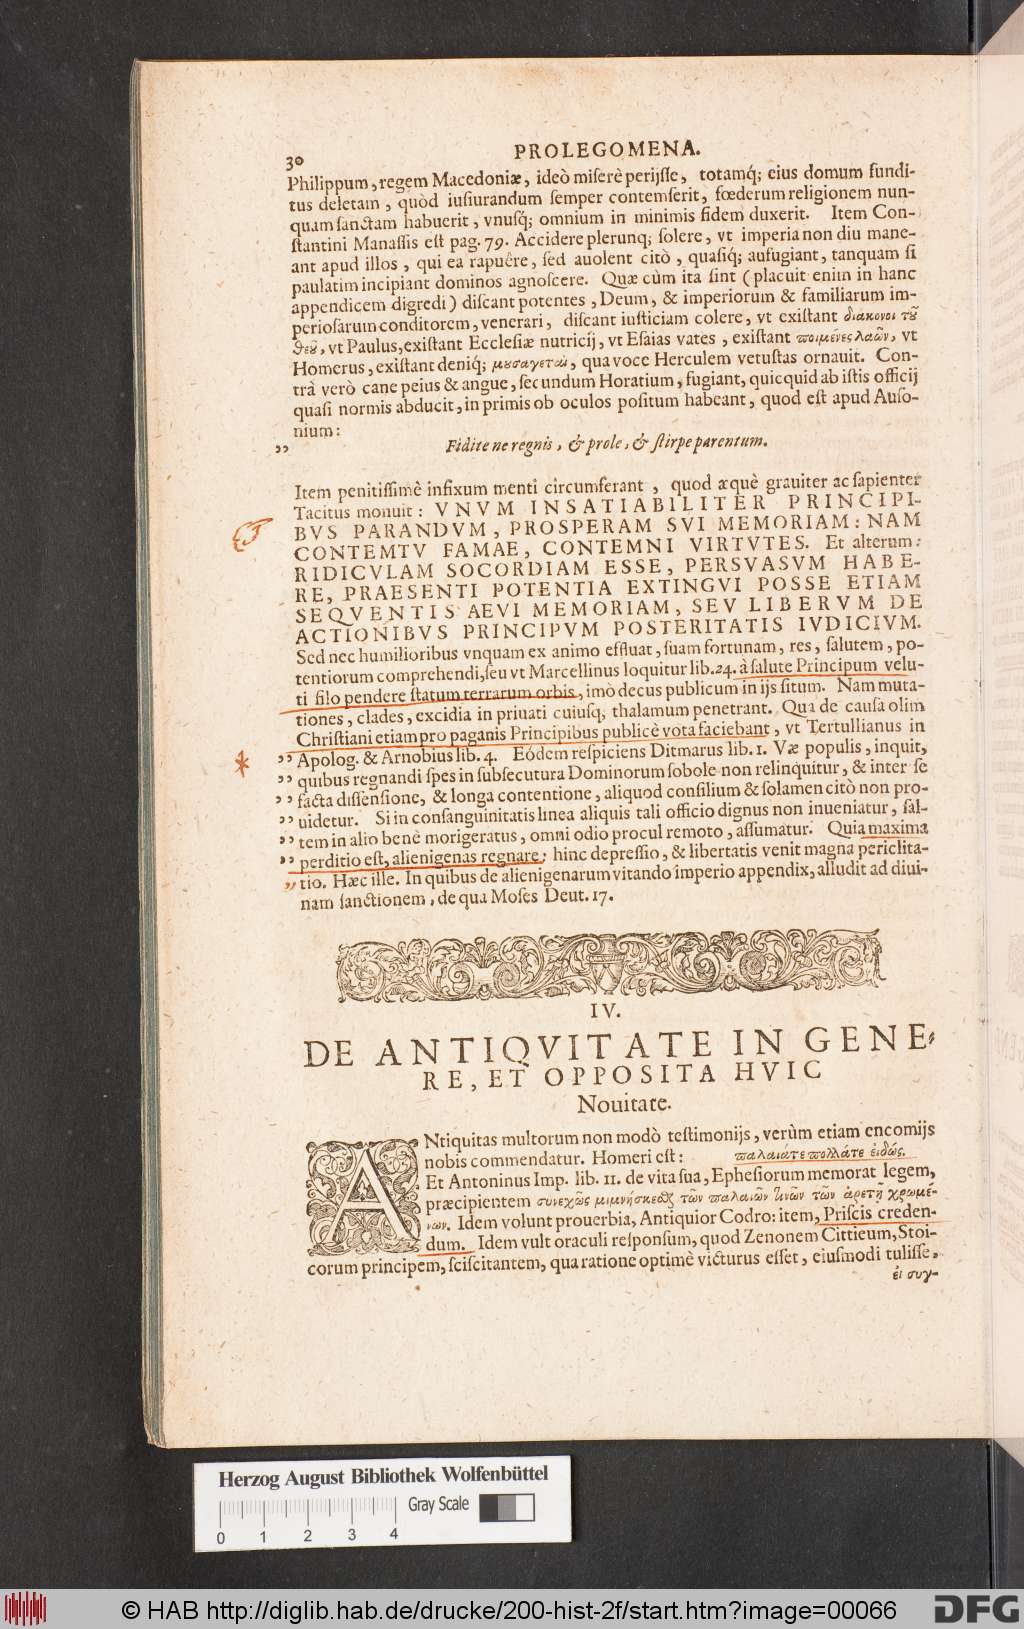 30
PROLEGOMENA.
Philippum, regem Macedoniæ, ideò miserè perijsse, totamq́; eius domum fundi-
tus deletam, quòd iusiurandum semper contemserit, fœderum religionem nun-
quam sanctam habuerit, vnusq́; omnium in minimis fidem duxerit. Item Con-
stantini Manassis est pag. 79. Accidere plerunq; solere, vt imperia non diu mane-
ant apud illos, qui ea rapuêre, sed auolent citò, quasiq́; aufugiant, tanquam si
paulatim incipiant dominos agnoscere. Quæ cùm ita sint (placuit enim in hanc
appendicem digredi) discant potentes, Deum, & imperiorum & familiarum im-
periosarum conditorem, venerari, discant iusticiam colere, vt existant διάκονοι τοῦ
θεοῦ, vt Paulus, existant Ecclesiæ nutricij, vt Esaias vates, existant ποιμένες λαῶν, vt
Homerus, existant deniq́; μουσαγεται, qua voce Herculem vetustas ornauit. Con-
trà verò cane peius & angue, secundum Horatium, fugiant, quicquid ab istis officij
quasi normis abducit, in primis ob oculos positum habeant, quod est apud Auso-
nium:
„ Fidite ne regnis, & prole, & stirpe parentum.
Item penitissimè infixum menti circumferant, quod æquè grauiter ac sapienter
Tacitus monuit: VNVM INSATIABILITER PRINCIPI-
BVS PARANDVM, PROSPERAM SVI MEMORIAM: NAM
CONTEMTV FAMAE, CONTEMNI VIRTVTES. Et alterum:
RIDICVLAM SOCORDIAM ESSE, PERSVASVM HABE-
RE, PRAESENTI POTENTIA EXTINGVI POSSE ETIAM
SEQVENTIS AEVI MEMORIAM, SEV LIBERVM DE
ACTIONIBVS PRINCIPVM POSTERITATIS IVDICIVM.
Sed nec humilioribus vnquam ex animo effluat, suam fortunam, res, salutem, po-
tentiorum comprehendi, seu vt Marcellinus loquitur lib. 24. à salute Principum velu-
ti filo pendere statum terrarum orbis, imò decus publicum in ijs situm. Nam muta-
tiones, clades, excidia in priuati cuiusq; thalamum penetrant. Qua de causa olim
Christiani etiam pro paganis Principibus publicè vota faciebant, vt Tertullianus in
„ Apolog. & Arnobius lib. 4. Eódem respiciens Ditmarus lib. 1. Væ populis, inquit,
„ quibus regnandi spes in subsecutura Dominorum sobole non relinquitur, & inter se
„ facta dissensione, & longa contentione, aliquod consilium & solamen citò non pro-
„ uidetur. Si in consanguinitatis linea aliquis tali officio dignus non inueniatur, sal-
„ tem in alio benè morigeratus, omni odio procul remoto, assumatur. Quia maxima
„ perditio est, alienigenas regnare: hinc depressio, & libertatis venit magna periclita-
„ tio. Hæc ille. In quibus de alienigenarum vitando imperio appendix, alludit ad diui-
nam sanctionem, de qua Moses Deut. 17.
IV.
DE ANTIQVITATE IN GENE-
RE, ET OPPOSITA HVIC
Nouitate.
ANtiquitas multorum non modò testimonijs, verùm etiam encomijs
nobis commendatur. Homeri est: παλαιάτε πολλάτε ειδώς.
Et Antoninus Imp. lib. 11. de vita sua, Ephesiorum memorat legem,
præcipientem συνεχῶς μιμνήσκεσθαι τῶν παλαιῶν τινῶν τῶν ἀρετῇ χρωμέ-
νων. Idem volunt prouerbia, Antiquior Codro: item, Priscis creden-
dum. Idem vult oraculi responsum, quod Zenonem Cittieum, Stoi-
corum principem, sciscitantem, qua ratione optimè victurus esset, eiusmodi tulisse,
ἐι συγ-
Herzog August Bibliothek Wolfenbüttel
Gray Scale
0 1 2 3 4
© HAB http://diglib.hab.de/drucke/200-hist-2f/start.htm?image=00066
DFG